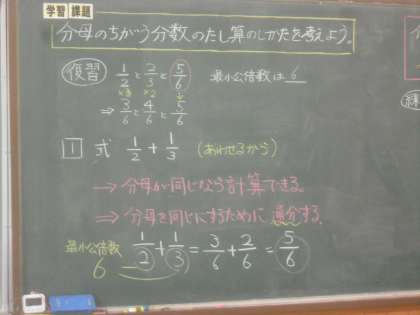 学習課題
分母のちがう分数のたし算のしかたを考えよう。
復習 1/2 と 2/3 と 5/6 最小公倍数は 6
×3 ×2
⇒ 3/6 と 4/6 と 5/6
1 式 1/2 + 1/3 (あわせるから)
⇒ 分母が同じなら計算できる
⇒ 分母を同じにするために通分する。
最小公倍数 6 1/2 + 1/3 = 3/6 + 2/6 = 5/6
練